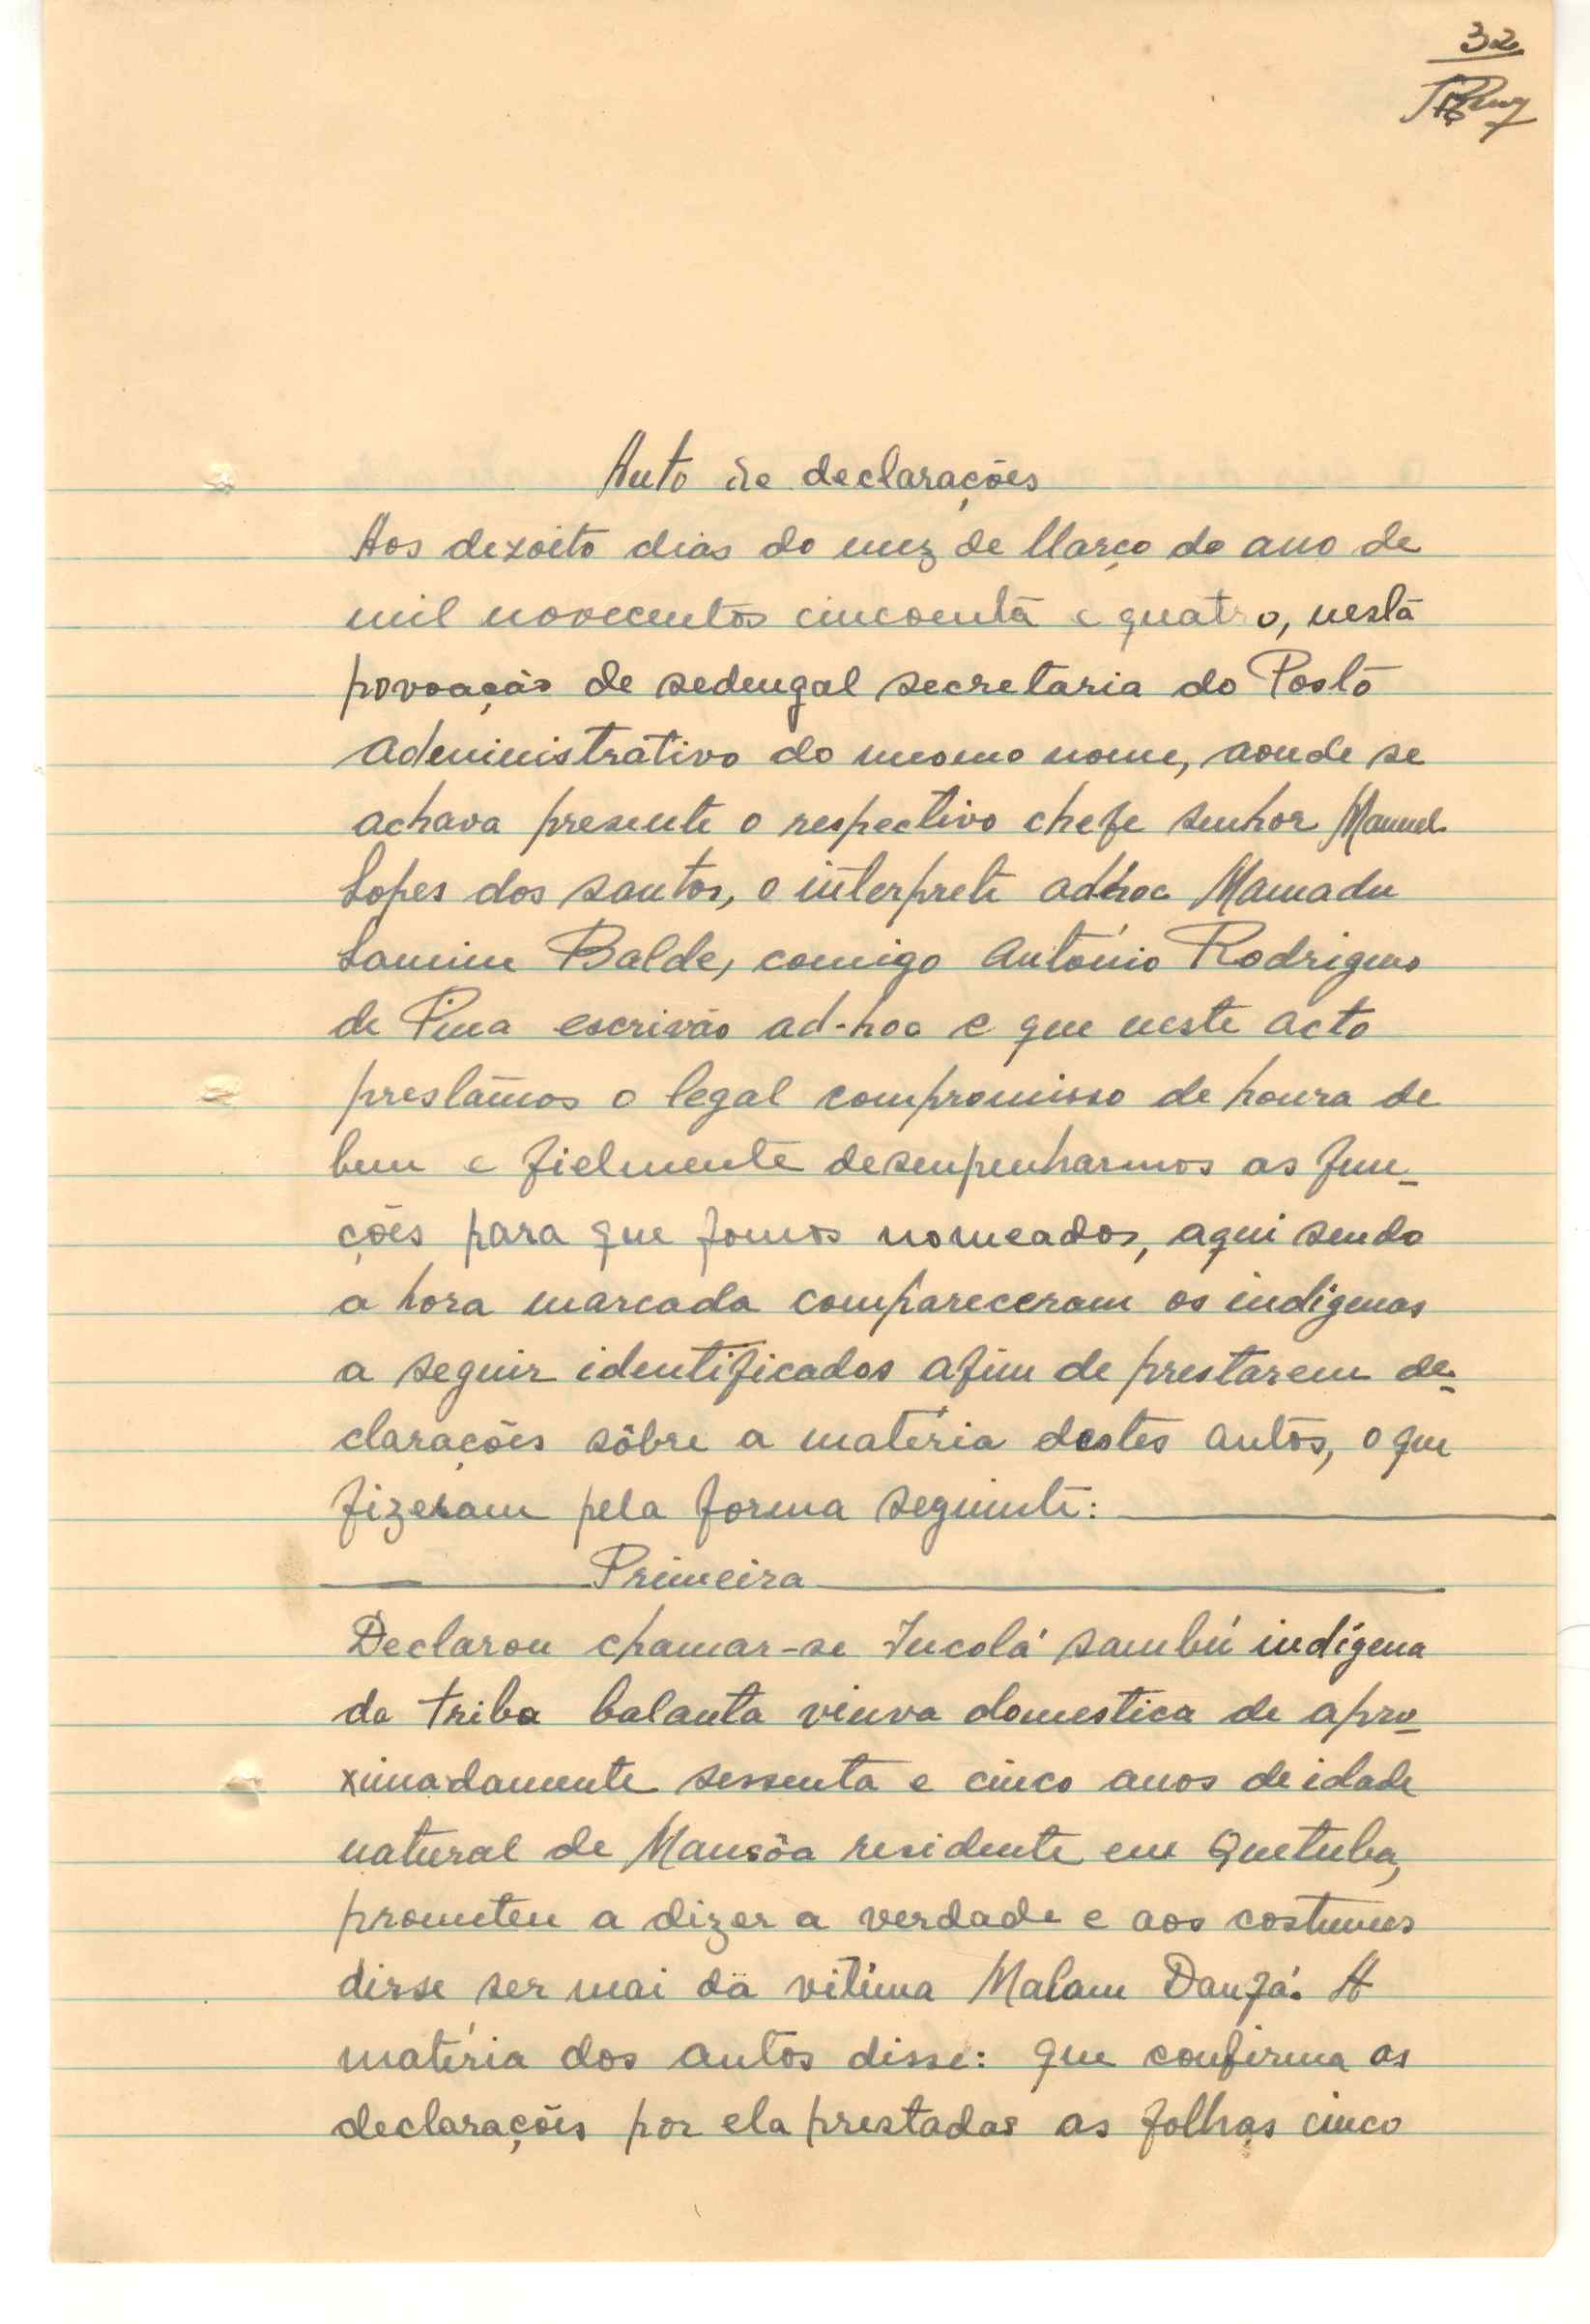 32
Auto de declarações
Aos dezoito dias do mez de Março do ano de
mil novecentos cincoenta e quatro, nesta
povoação de sedengal secretaria do Posto
administrativo do mesmo nome, aonde se
achava presente o respectivo chefe senhor Manuel
Lopes dos santos, o interprete adhoc Mamadu
Lamine Balde, comigo António Rodrigues
de Pina escrivão ad-hoc e que neste acto
prestâmos o legal compromisso de honra de
bem e fielmente desenpenharmos as fun-
ções para que fomos nomeados, aqui sendo
a hora marcada compareceram os indígenas
a seguir identificados afim de prestarem de-
clarações sôbre a matéria destes autos, o que
fizeram pela forma seguinte:
Primeira
Declarou chamar-se Incolá sambú indígena
da triba balanta viuva domestica de apro-
ximadamente sessenta e cinco anos de idade
natural de Mansôa residente em Quetuba,
prometeu a dizer a verdade e aos costumes
disse ser mai da vitima Malam Danfá. A
matéria dos autos disse: que confirma as
declarações por ela prestadas as folhas cinco